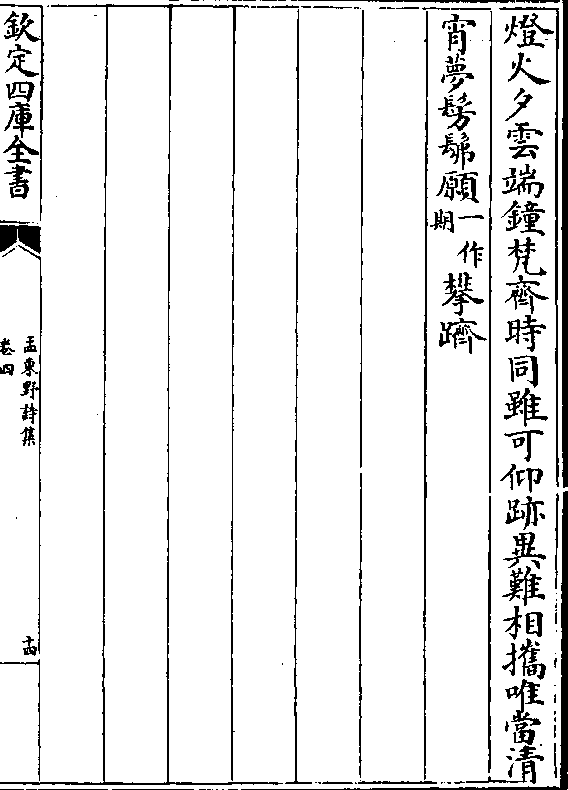 燈火夕雲端鐘梵齊時同雖可仰跡異難相攜唯當清
宵夢髣髴願一作期攀躋
欽定四庫全書
孟東野詩集
卷四
十四